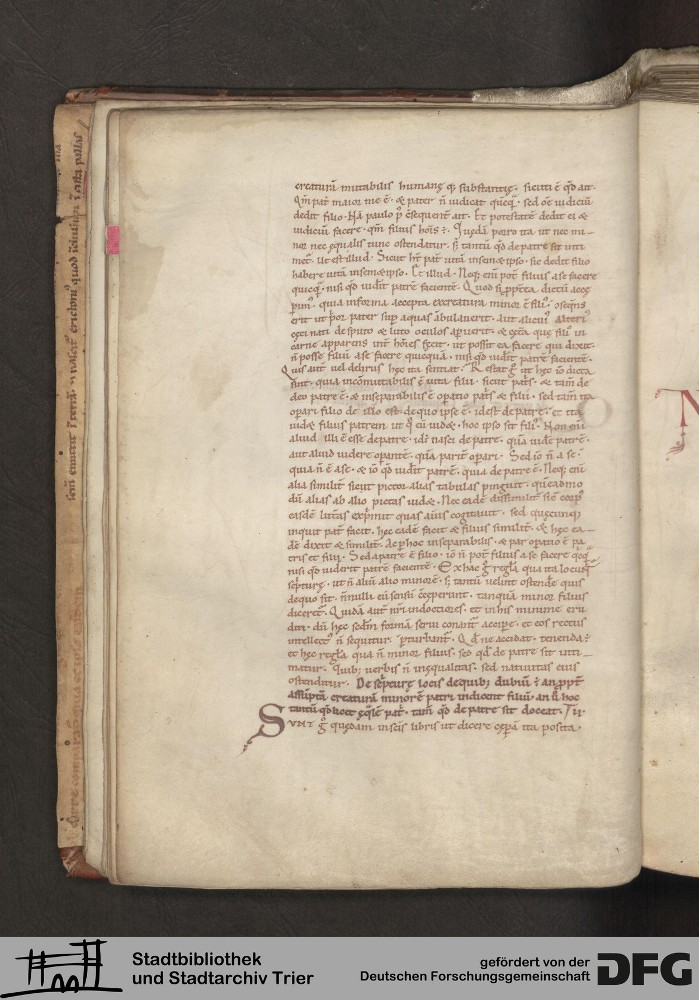 creaturā mutabilis humanę qͥ substantię. sicuti ē qd̄ ait.
Qm̄ pat̄ maior me ē. & pater n̄ iudicat quēq̄. sed om̄e iudiciū
dedit filio. Nā paulo p̄ c̄sequent̄ ait. Et potestatē dedit ei &
iudiciū facere. qm̄ filius hoīs ē. Quędā porro ita ut nec mi-
nor nec ęqualis tunc ostendatur. s; tantū qd̄ de patre sit inti
met̄. ut est illud. Sicut ht̄ pat̄ uitā insem&ipso. sic dedit filio
habere uitā insem&ipso. Et illud. Neq; eni pot̄ filius a se facere
quicq̄. nisi qd̄ uidit patrē facientē. Quod si ppt̄ea dictū accę
pim'. quia in forma accepta ex creatura minor ē fili'. c̄seqns
erit ut p̓or pater sup aquas ābulauerit. aut alicui' alteri'
cęci nati de sputo & luto oculos apuerit. & cęt̄a quę fili' in
carne apparens int̄ hoīes fecit. ut possit ea facere qui dixit.
n̄ posse filiū a se facere quicquā. nisi qd̄ uidit patrē facientē.
Quis aut̄ uel delirus hęc ita sentiat. Restat g̊ ut hęc iō dicta
sint. quia incōmutabilis ē uita filii. sicut pat̄s. & tam̄ de
deo patre ē. & inseparabilis ē opatio pat̄s & filii. sed tam̄ ita
opari filio de illo est. de quo ipse ē. id est de patre. et ita
uid& filius patrem ut q̊ eū uid&. hoc ipso sit fili'. Non eni
aliud illi ē esse de patre. id ē nasci de patre. quā uidē patrē.
aut aliud uidere opantē. quā parit̄ opari. Sed iō n̄ a se.
quia n̄ ē a se. & iō qd̄ uidit patrē. quia de patre ē. Neq; eni
alia similit̄ sicut pictor alias tabulas pinguit. quēadmo
dū alias ab alio pictas uid&. Nec eadē dissimilit̄ sic̄ corp'
easdē litt̄as exprimit quas anim' cogitauit. sed quęcunq;
inquit pat̄ facit. hęc eadē facit & filius similit̄. & hęc ea-
dē dixit & similit̄. Ac phoc inseparabilis. & par opatio ē pa
tris et filii. Sed a patre ē filio. iō n̄ pot̄ filius a se facere qcq̄
nisi qd̄ uiderit patrē facientē. Ex hac g̊ regla qua ita locunt'
scpturę. ut n̄ aliū alio minorē. s; tantū uelint ostende quis
de quo sit. nnulli eū sensū c̄ceperunt. tanquā minor filius
diceret̄. Quidā aut̄ nr̄i indoctiores. et in his minime eru
diti. dū hęc sedm formā serui conant̄ accipe. et eos rectus
intellect' n̄ sequitur. pturbant̄. Qd̄ ne accidat. tenenda ē
et hęc regla qua n̄ minor filius. sed qd̄ de patre sit inti-
matur. Quib; uerbis n̄ inęqualitas. sed natiuitas eius
ostenditur. De scpturę locis de quib; dubiū ē an ppt̄
assūptā creaturā minorē patri indicent filiū. an ū hoc
tantū qd̄ licet ęqle pat̄. tam̄ qd̄ de patre sit doceat. II.
Sunt g̊ quędam in scīs libris ut dicere cępam̄ ita posita.
Stadtbibliothek
und Stadtarchiv Trier
gefördert von der
Deutschen Forschungsgemeinschaft
DFG